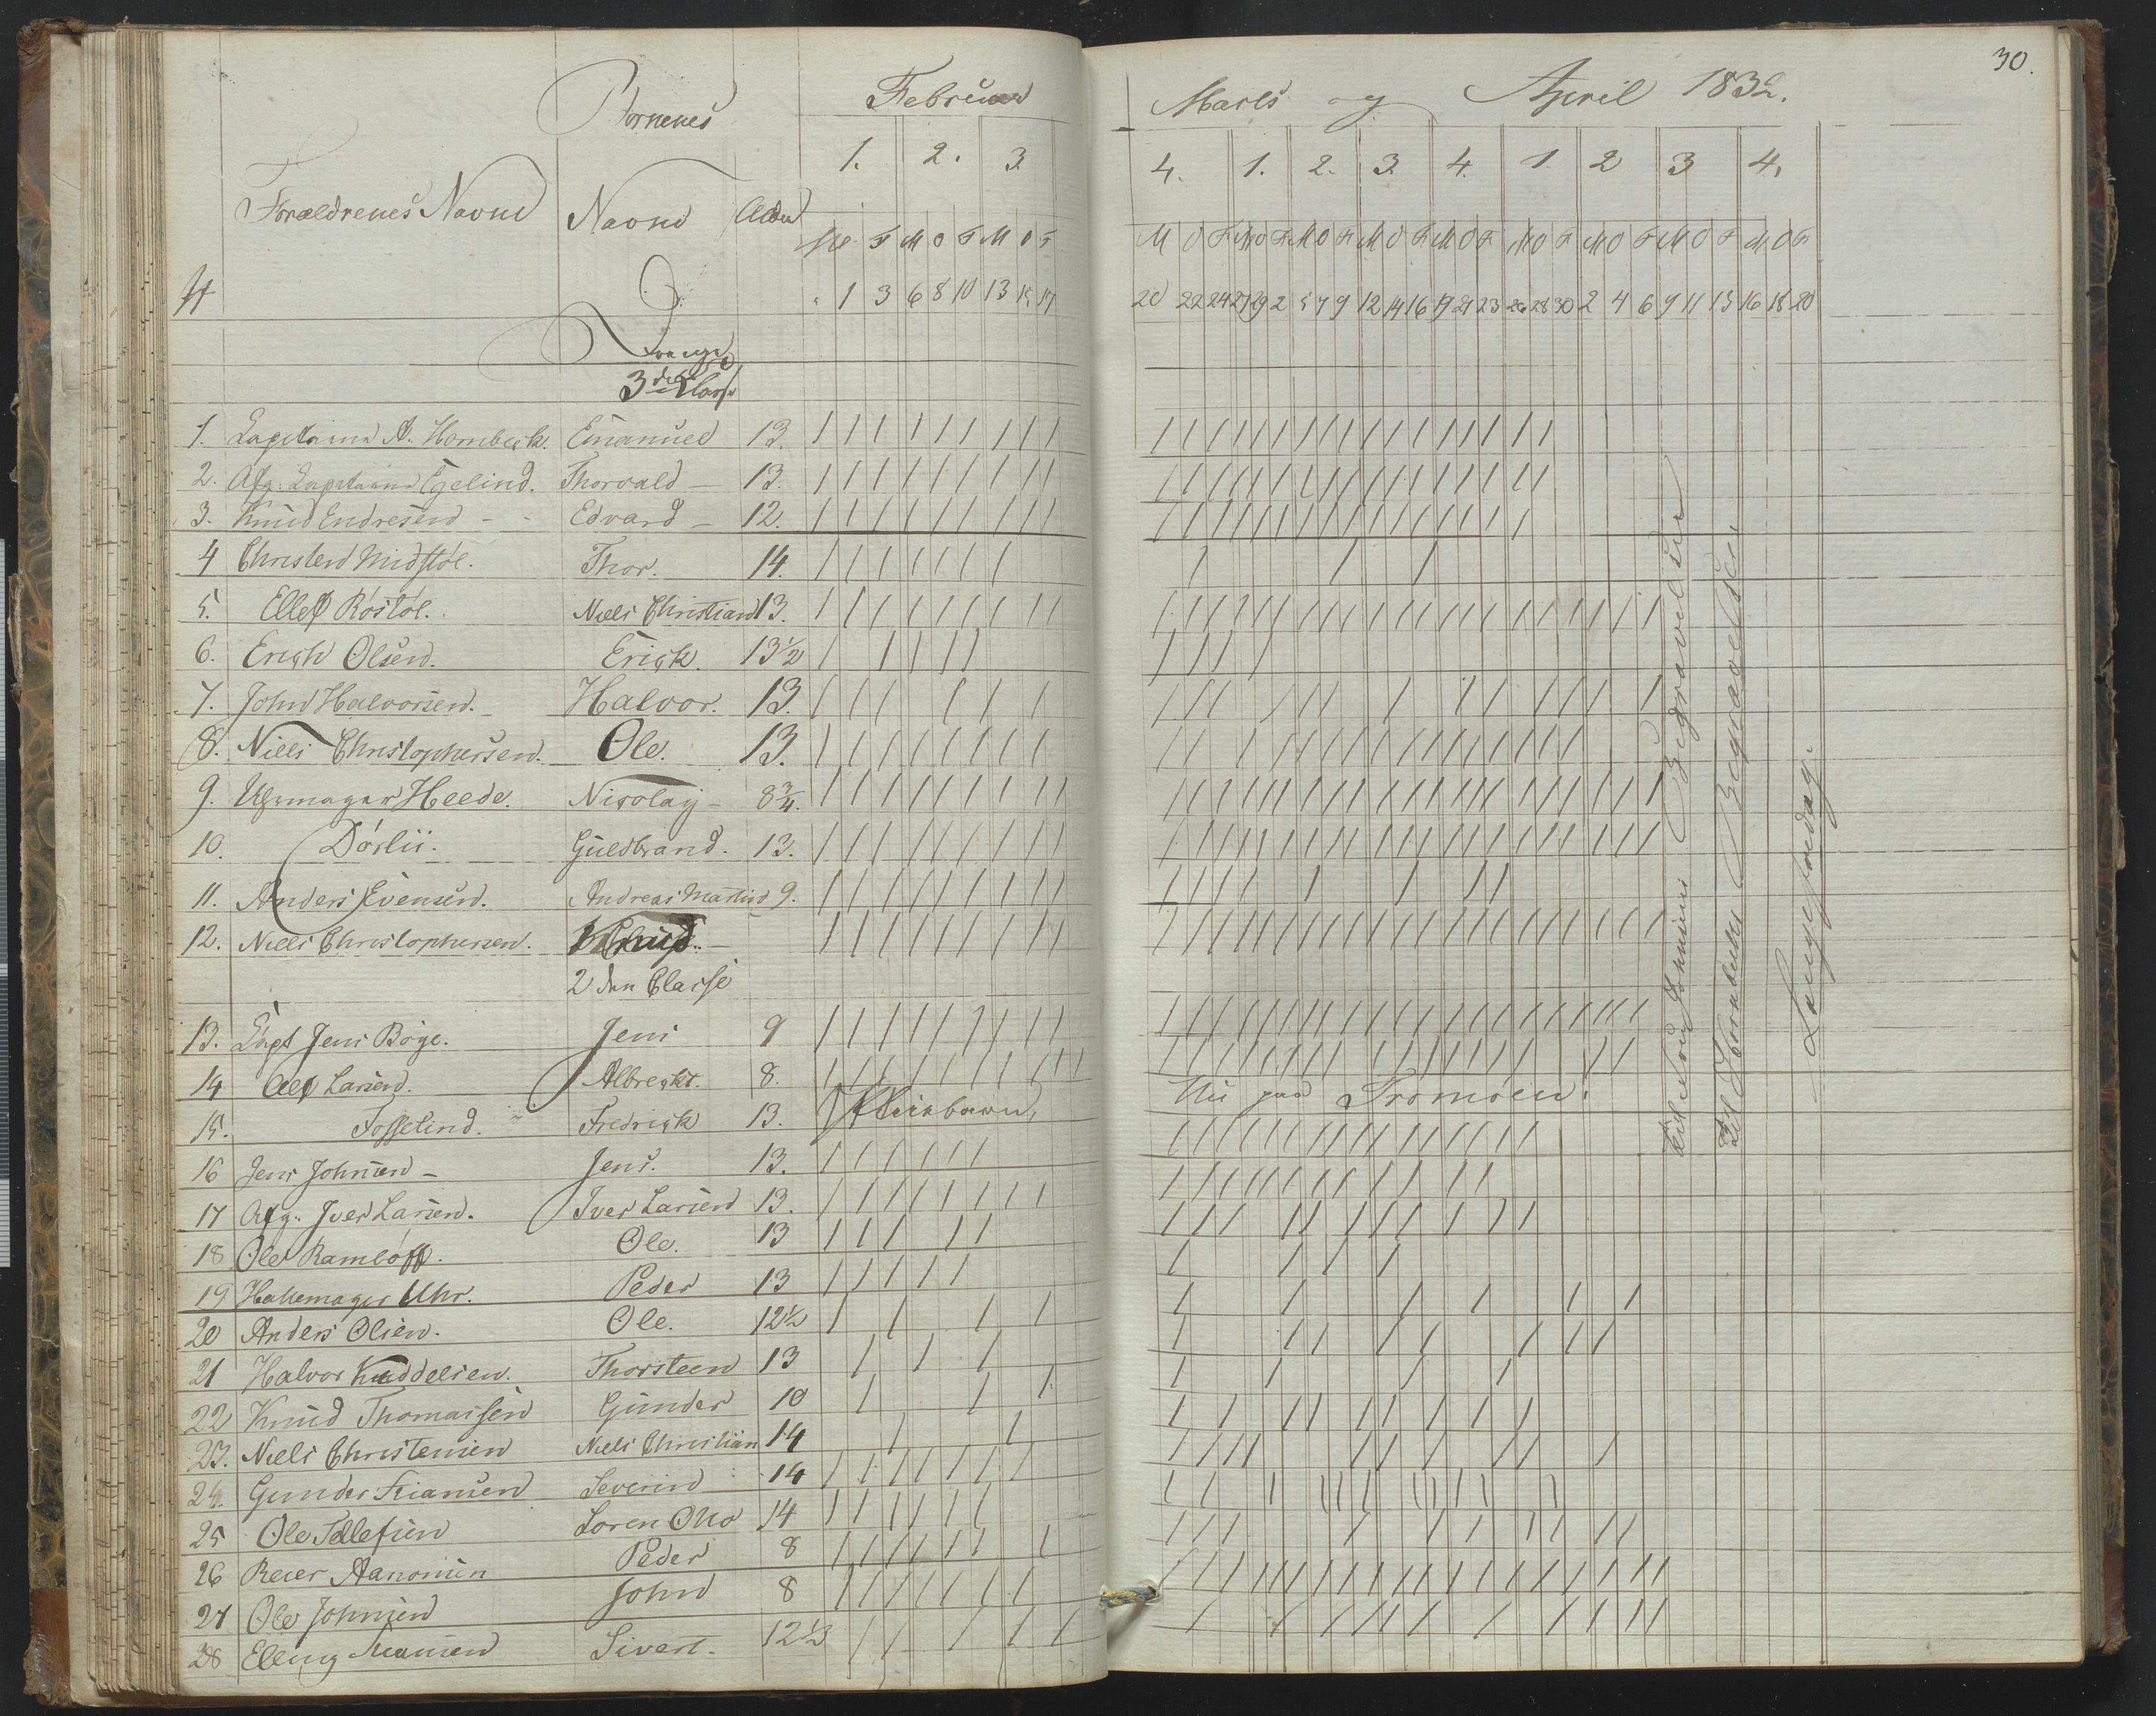 30.
Børnenes
Februar
Marts og April 1832.
1. 2. 3
4. 1. 2. 3. 4. 1. 2 3 4.
Forældrenes Navne Navne Alder
M F M O F M O F
M O F M O F M O F M O F M O F M O F M O F M O F M O F
1 3 6 8 10 13 15 17
20 22 24 27 29 2 5 7 9 12 14 16 19 21 23 26 28 30 2 4 6 9 11 13 16 18 20
Drenge
3die Classe
1. Capitaine A. Hornbeck. Emanuel 13.
2. Afg. Capitaine Egelind. Thorvald 13.
3. Knud Endresen Edvard 12.
4 Christen Midstøl. Thor. 14.
5. Ellef Røstøl. Niels Christian 13.
6. Erich Olsen. Erick. 13½
7. John Halvorsen. Halvor. 13.
8. Niels Christophersen. Ole. 13.
9. Uhrmager Heede. Nicolay 8¾.
10. Dørlii. Guldbrand. 13.
11. Anders Evensen. Andreas Martin 9.
12. Niels Christophersen. Knud
2den Classe
13. Capt Jens Bøge. Jens 9
14 Alf Larsen. Albrecht. 8.
15. Fosselind. Fredrick 13.
Nu paa Tromøen.
16 Jens Johnsen Jens. 13.
17 Afg. Iver Larsen. Iver Larsen 13.
18 Ole Rambøff. Ole. 13
19 Hattemager Uhr. Peder 13
20 Anders Olsen. Ole. 12½
21 Halvor Knuddelsen. Thorsteen 13
22 Knud Thomassen Gunder 10
23. Niels Christensen Niels Christian 14
24. Gunder Severin 14
25 Ole Tellefsen Soren Otto 14
26 Reier Aanonsen Peder 8
27 Ole Johnsen John 8
28 Elling Sivert. 12½
Begravelse
Hornbecks Begravelse
Langefredag.